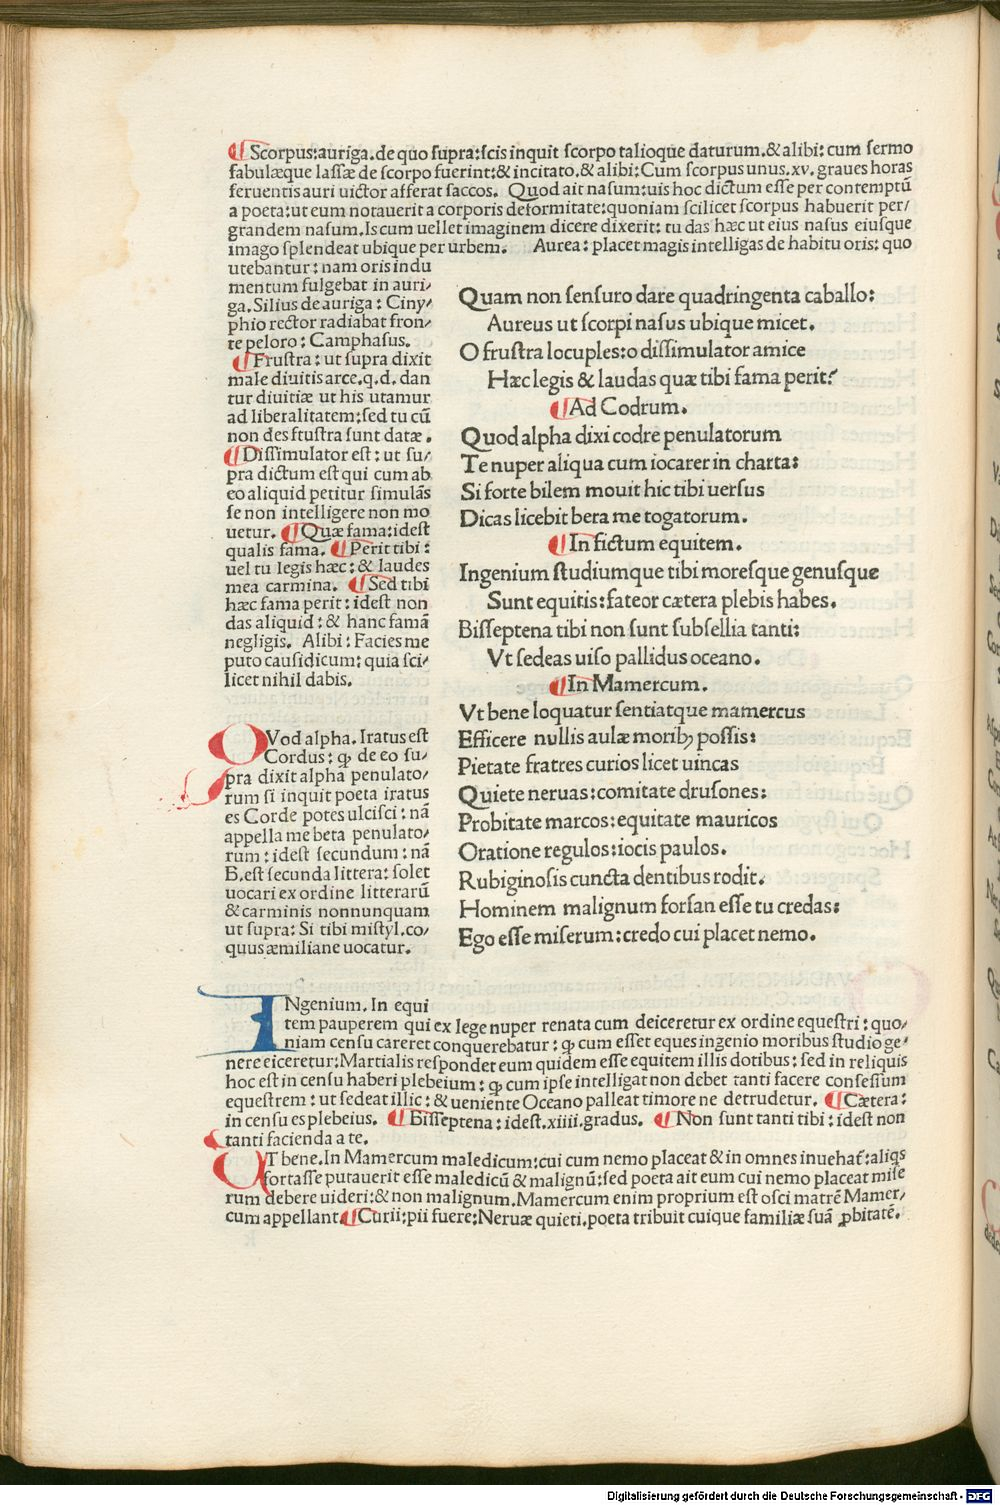 ¶Scorpus:auriga.de quo supra:scis inquit scorpo talioque daturum.&alibi: cum sermo
fabulæque lassæ de scorpo fuerint:& incitato.& alibi:Cum scorpus unus.xv. graues horas
feruentis auri uictor afferat saccos. Quod ait nasum:uis hoc dictum esse per contemptū
a poeta:ut eum notauerit a corporis deformitate:quoniam scilicet scorpus habuerit per/
grandem nasum.Is cum uellet imaginem dicere dixerit: tu das hæc ut eius nasus eiusque
imago splendeat ubique per urbem. Aurea: placet magis intelligas de habitu oris: quo
utebantur: nam oris indu
mentum fulgebat in auri/
ga.Silius de auriga: Ciny/
phio rector radiabat fron/
te peloro: Camphasus.
¶Frustra: ut supra dixit
male diuitis arce.q.d. dan
tur diuitiæ ut his utamur
ad liberalitatem:sed tu cū
non des frustra sunt datæ.
¶Dissimulator est: ut su/
pra dictum est qui cum ab
eo aliquid petitur simulās
se non intelligere non mo
uetur. ¶Quæ fama:idest
qualis fama. ¶Perit tibi:
uel tu legis hæc:& laudes
mea carmina. ¶Sed tibi
hæc fama perit: idest non
das aliquid: & hanc famā
negligis. Alibi: Facies me
puto causidicum: quia sci/
licet nihil dabis.
QVod alpha. Iratus est
Cordus: ꝙ de eo su/
pra dixit alpha penulato/
rum si inquit poeta iratus
es Corde potes ulcisci: nā
appella me beta penulato/
rum: idest secundum: nā
B.est secunda littera: solet
uocari ex ordine litterarū
& carminis nonnunquam
ut supra: Si tibi mistyl.co/
quus æmiliane uocatur.
Quam non sensuro dare quadringenta caballo:
Aureus ut scorpi nasus ubique micet.
O frustra locuples:o dissimulator amice
Hæc legis & laudas quæ tibi fama perit?
¶Ad Codrum.
Quod alpha dixi codre penulatorum
Te nuper aliqua cum iocarer in charta:
Si forte bilem mouit hic tibi uersus
Dicas licebit bera me togatorum.
¶In fictum equitem.
Ingenium studiumque tibi moresque genusque
Sunt equitis:fateor cætera plebis habes.
Bisseptena tibi non sunt subsellia tanti:
Vt sedeas uiso pallidus oceano.
¶In Mamercum.
Vt bene loquatur sentiatque mamercus
Efficere nullis aulæ moribꝫ possis:
Pietate fratres curios licet uincas
Quiete neruas:comitate drusones:
Probitate marcos:equitate mauricos
Oratione regulos:iocis paulos.
Rubiginosis cuncta dentibus rodit.
Hominem malignum forsan esse tu credas:
Ego esse miserum:credo cui placet nemo.
INgenium. In equi
tem pauperem qui ex lege nuper renata cum deiceretur ex ordine equestri: quo/
niam censu careret conquerebatur: ꝙ cum esset eques ingenio moribus studio ge/
nere eiceretur:Martialis respondet eum quidem esse equitem illis dotibus: sed in reliquis
hoc est in censu haberi plebeium: ꝙ cum ipse intelligat non debet tanti facere confessum
equestrem: ut sedeat illic: & ueniente Oceano palleat timore ne detrudetur. ¶Cætera:
in censu es plebeius. ¶Bisseptena: idest.xiiii.gradus. ¶Non sunt tanti tibi: idest non
tanti facienda a te.
VT bene.In Mamercum maledicum:cui cum nemo placeat & in omnes inuehat᷑:aliqs
fortasse putauerit esse maledicū & malignū:sed poeta ait eum cui nemo placeat mise
rum debere uideri:& non malignum.Mamercum enim proprium est osci matrē Mamer/
cum appellant.¶Curii:pii fuere:Neruæ quieti.poeta tribuit cuique familiæ suā ꝓbitatē.
Digitalisierung gefördert durch die Deutsche Forschungsgemeinschaft - DFG